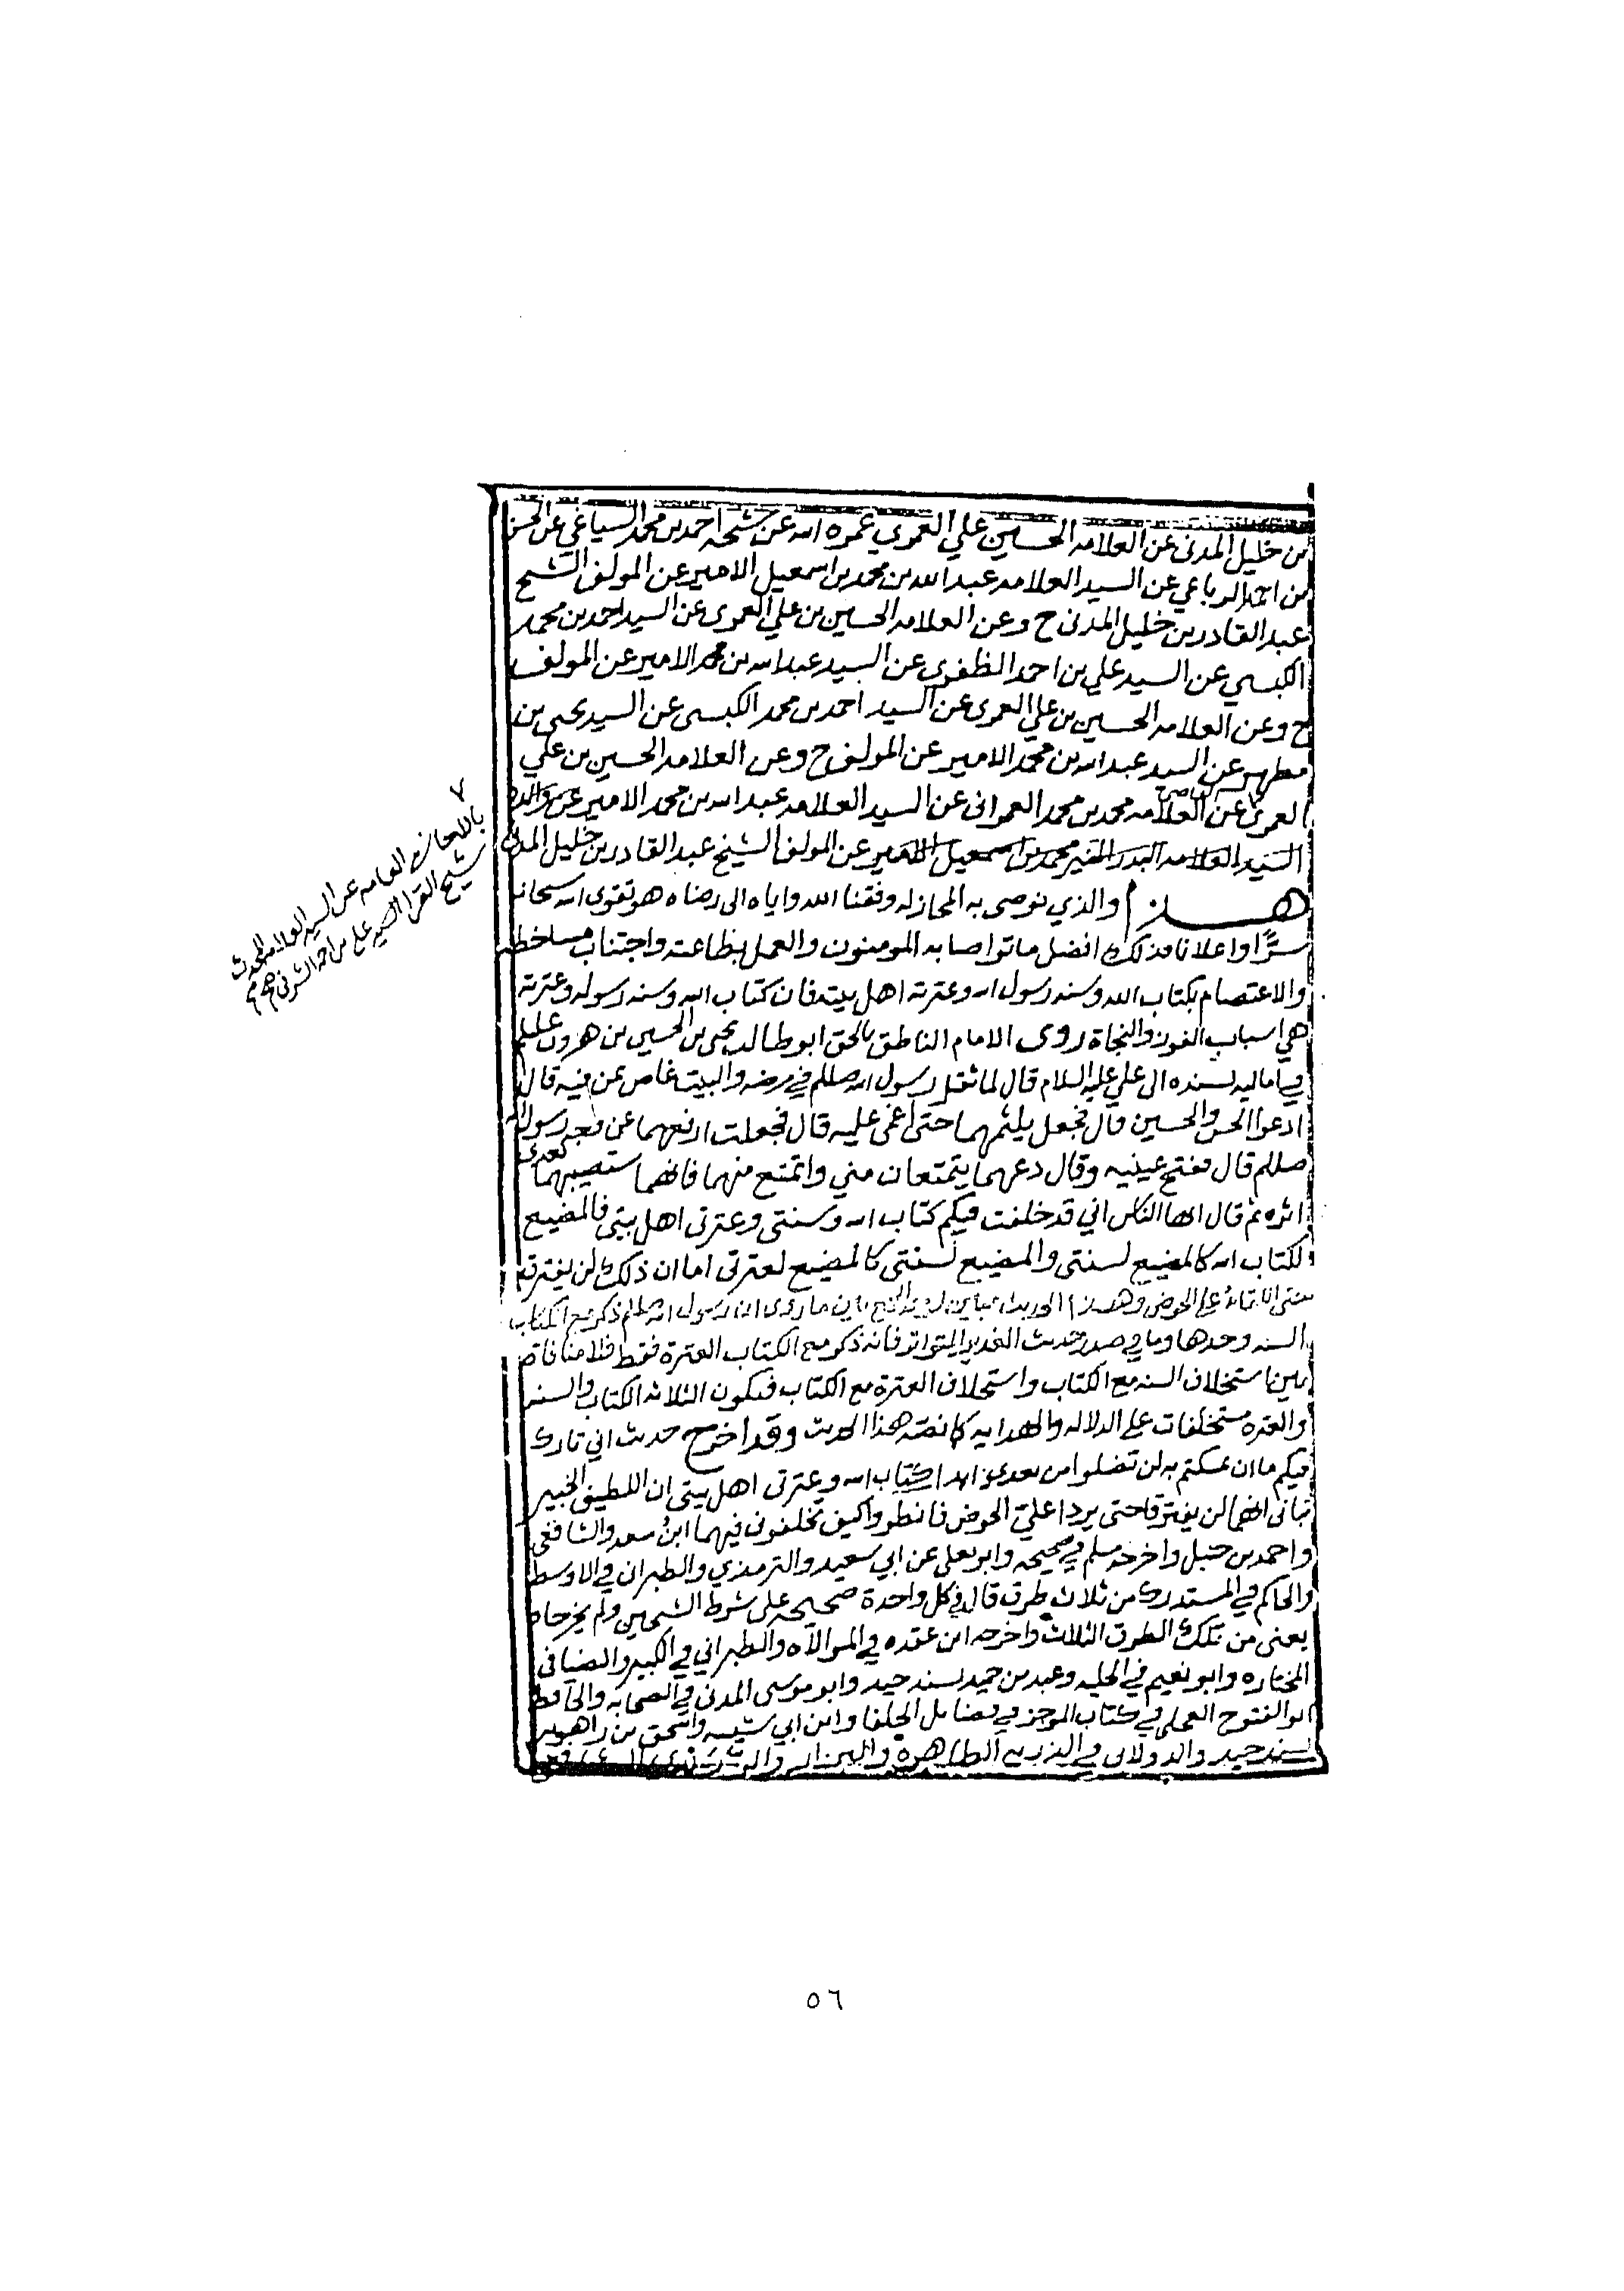 بن خليل المدني عن العلامه الحسين علي العمري عمره الله عن شيخه احمد بن محمد السياغي عن الحسن
بن احمد الرباعي عن السيد العلامه عبدالله بن محمد بن اسمعيل الامير عن المولف الشيخ
عبدالقادر بن خليل المدني ح وعن العلامه الحسين بن علي العمري عن السيد احمد بن محمد
الكبسي عن السيد علي بن احمد الظفري عن السيد عبدالله بن محمد الامير عن المولف
ح وعن العلامه الحسين بن علي العمري عن السيد احمد بن محمد الكبسي عن السيد يحيى بن
مطهر عن السيد عبدالله بن محمد الامير عن المولف ح وعن العلامه الحسين بن علي
العمري عن العلامه محمد بن محمد العمراني عن السيد العلامه عبدالله بن محمد الامير عن والده
السيد العلامه البدر المنير محمد بن اسمعيل الامير عن المولف الشيخ عبدالقادر بن خليل المدني
هذا والذي نوصي به المجاز له وفقنا الله واياه الى رضاه هو تقوى الله سبحانه
سرًّا واعلانا فذلك افضل ما تواصا به المومنون والعمل بطاعته واجتناب مساخطه
والاعتصام بكتاب الله وسنة رسول الله وعترته اهل بيته فان كتاب الله وسنه رسوله وعترته
هي اسباب الفوز والنجاة روى الامام الناطق بالحق ابوطالب يحيى بن الحسين بن هرون عليلم
في اماليه بسنده الى علي عليه السلام قال لما ثقل رسول الله صللم في مرضه والبيت غاص بمن فيه قال
ادعوا الحسن والحسين قال فجعل يلثمهما حتى اغمي عليه قال فجعلت ارفعهما عن وجه رسول الله
صللم قال ففتح عينيه وقال دعهما يتمتعان مني واتمتع منهما فانهما ستصيبهما بعدي
اثره ثم قال ايها الناس اني قد خلفت فيكم كتاب الله وسنتي وعترتي اهل بيتي فالمضيع
لكتاب الله كالمضيع لسنتي والمضيع لسنتي كالمضيع لعترتي اما ان ذلك لن يفترقا
حتى اللقاء على الحوض وهذا الحديث ما روى ان رسول الله صللم ذكر مع الكتاب
السنه وحدها وما في صدر حديث الغدير المتواتر فانه ذكر مع الكتاب العترة فقط فلا منافاة
بين استخلاف السنه مع الكتاب واستخلاف العترة مع الكتاب فيكون الثلاثه الكتاب والسنه
والعتره مستخلفات على الدلاله والهدايه كما نصه هذا الحديث وقد اخرج حديث اني تارك
فيكم ما ان تمسكتم به لن تضلوا من بعدي ابدا كتاب الله وعترتي اهل بيتي ان اللطيف الخبير
نباني انهما لن يفترقا حتى يردا عليّ الحوض فانظروا كيف تخلفوني فيهما ابن سعد والشافعي
واحمد بن حنبل واخرجه مسلم في صحيحه وابو يعلى عن ابي سعيد والترمذي والطبراني في الاوسط
والحاكم في المستدرك من ثلاث طرق قال في كل واحدة صحيحه على شرط الشيخين ولم يخرجاه
يعني من تلك الطرق الثلاث واخرجه ابن عقده في الموالاه والطبراني في الكبير والضيا في
المختاره وابو نعيم في الحليه وعبد بن حميد بسند جيد وابو موسى المدني في الصحابه والحافظ
ابو الفتوح العجلي في كتاب الموجز في فضايل الخلفا وابن ابي شيبه واسحق بن راهويه
بسند جيد والدولابي في الذريه الطاهرة والبزار
باللحاني العامه عن السيد العلامه المحدث
شيخ القرا السيد علي بن احمد الشرفي
٥٦